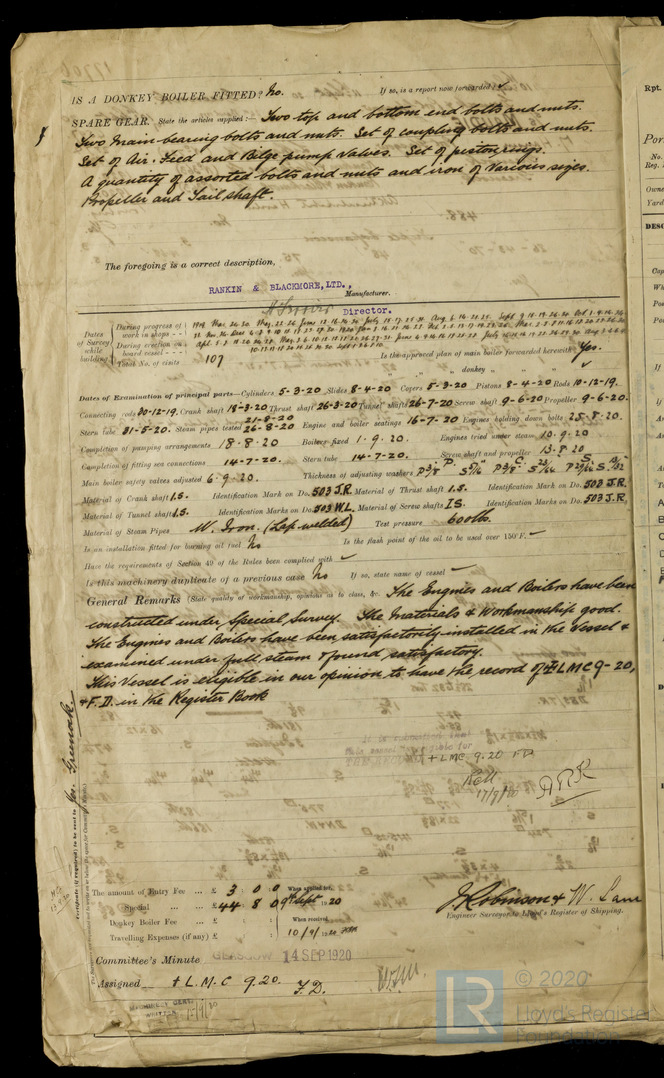 IS A DONKEY BOILER FITTED? No. If so, is a report now forwarded? ✓
SPARE GEAR. State the articles supplied:— Two top and bottom end bolts and nuts.
Two main bearing bolts and nuts. Set of coupling bolts and nuts.
Set of Air. Feed and Bilge pump valves. Set of piston rings.
A quantity of assorted bolts and nuts and iron of various sizes.
Propeller and Tail shaft.
The foregoing is a correct description,
RANKIN & BLACKMORE, LTD.,
Manufacturer.
Director.
Dates of Survey while building
During progress of work in shops
During erection on board vessel
Total No. of visits 107
Is the approved plan of main boiler forwarded herewith Yes.
" " " donkey " " "
Dates of Examination of principal parts—Cylinders 5-3-20 Slides 8-4-20 Covers 5-3-20 Pistons 8-4-20 Rods 10-12-19.
Connecting rods 30-12-19. Crank shaft 18-3-20 Thrust shaft 26-3-20 Tunnel shafts 26-7-20 Screw shaft 9-6-20 Propeller 9-6-20.
Stern tube 31-5-20. Steam pipes tested 21-8-20 26-8-20 Engine and boiler seatings 16-7-20 Engines holding down bolts 25-8-20.
Completion of pumping arrangements 18-8-20 Boilers fixed 1-9-20. Engines tried under steam 10-9-20
Completion of fitting sea connections 14-7-20. Stern tube 14-7-20. Screw shaft and propeller 13-8-20
Main boiler safety valves adjusted 6-9-20. Thickness of adjusting washers
Material of Crank shaft I.S. Identification Mark on Do. 503 J.R. Material of Thrust shaft I.S. Identification Mark on Do. 503 J.R.
Material of Tunnel shafts I.S. Identification Marks on Do. 503 W.L. Material of Screw shafts I.S. Identification Marks on Do. 503 J.R.
Material of Steam Pipes W. Iron. (Lap-welded) Test pressure 600 lbs.
Is an installation fitted for burning oil fuel No Is the flash point of the oil to be used over 150°F. –
Have the requirements of Section 49 of the Rules been complied with ✓
Is this machinery duplicate of a previous case No If so, state name of vessel ✓
General Remarks (State quality of workmanship, opinions as to class, &c. The Engines and Boilers have been
constructed under Special Survey. The Materials & Workmanship good.
The Engines and Boilers have been satisfactorily installed in the Vessel &
examined under full steam & found satisfactory.
This Vessel is eligible in our opinion to have the record of +LMC 9-20,
& F.D. in the Register Book
It is submitted that
this vessel is eligible for
THE RECORD + LMC 9.20 FD
17/9/20
Certificate (if required) to be sent to Greenock.
The amount of Entry Fee ... £ 3 : 0 : 0 When applied for,
Special ... £ 44 : 8 : 0 9th Sept. 20
Donkey Boiler Fee ... £ : : When received,
Travelling Expenses (if any) £ : : 10/9/20
J. Robinson & W. Lane
Engineer Surveyor to Lloyd's Register of Shipping.
Committee's Minute GLASGOW 14 SEP 1920
Assigned + L.M.C 9.20. F.D.
MACHINERY CERT.
WRITTEN 15/9/20
LR © 2020
Lloyd's Register
Foundation
Rpt.
Por
No.
Reg.
Owne
Yard
DESC